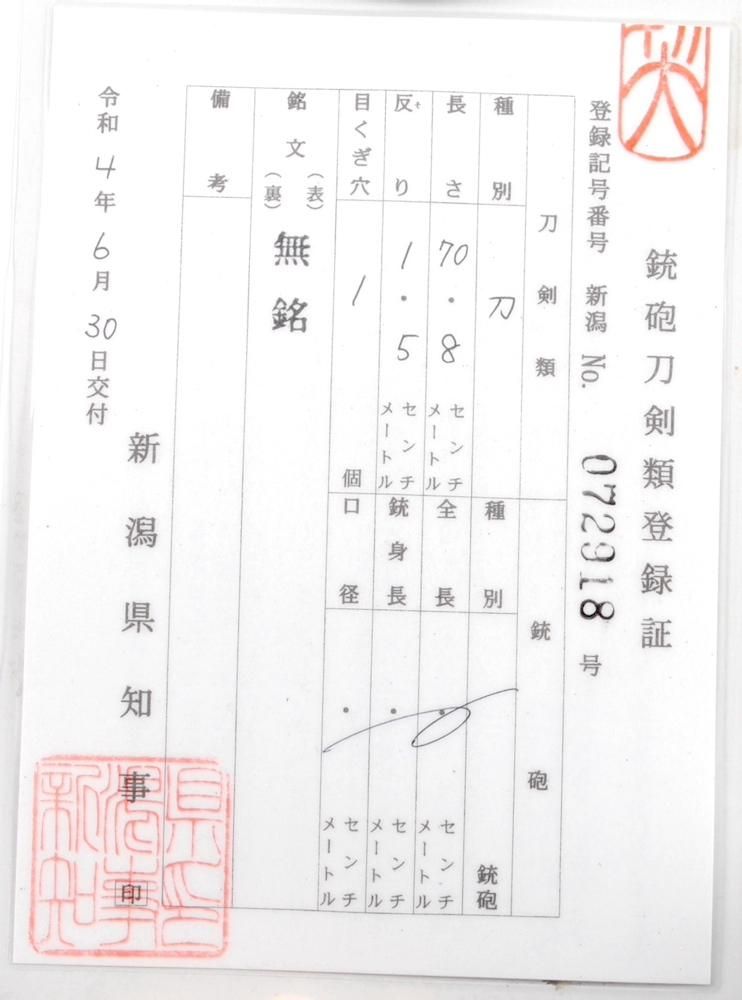 銃砲刀剣類登録証
登録記号番号 新潟 No. 072918 号
刀剣類
種別 刀
長さ 70.8 センチメートル
反り 1.5 センチメートル
目くぎ穴 1 個
銃砲
種別 銃砲
全長 ・ センチメートル
銃身長 ・ センチメートル
口径 ・ センチメートル
銘文 (表) (裏) 無銘
備考
令和4年6月30日交付
新潟県知事 印
新潟県知事之印